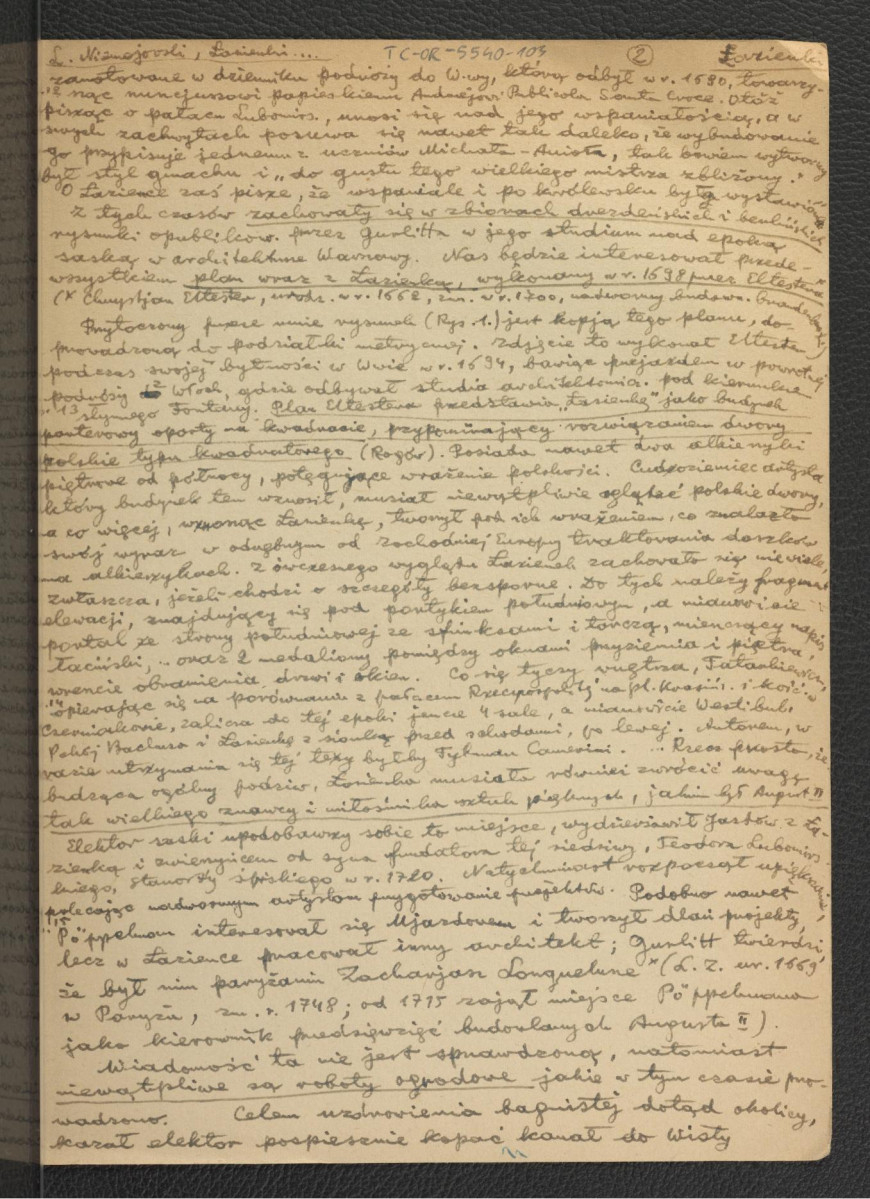 L. Niemojewski, Łazienki.... TC-OR-5540-103 (2) Łazienki
zanotowane w dzienniku podróży do W-wy, którą odbył w r. 1690, towarzy-
"12 sząc nuncjuszowi papieskiemu Andrzejowi Publicola Santa Croce. Otóż
pisząc o pałacu Lubomirs., unosi się nad jego wspaniałością, a w
swych zachwytach posuwa się nawet tak daleko, że wybudowanie
go przypisuje jednemu z uczniów Michała-Anioła, tak bowiem wytworny
był styl gmachu i "do gustu tego wielkiego mistrza zbliżony."
O Łazience zaś pisze, że wspaniale i po królewsku była wystawiona
Z tych czasów zachowały się w zbiorach drezdeńskich i berlińskich
rysunki opublikow. przez Gurlitta w jego studium nad epoką
saską w architekturze Warszawy. Nas będzie interesował przede-
wszystkiem plan wraz z Łazienką, wykonany w r. 1698 przez Eltestera
(x Chrystjan Eltester, urodz. w r. 1662, zm. w r. 1700, nadworny budown. brandenburski)
Przytoczony przeze mnie rysunek (Rys. 1.) jest kopją tego planu, do-
prowadzoną do podziałki metrycznej. Zdjęcie to wykonał Eltester
podczas swojej bytności w W-wie w r. 1694, bawiąc przejazdem w powrotnej
podróży z Włoch, gdzie odbywał studia architektonicz. pod kierunkiem
"13 słynnego Fontany. Plan Eltestera przedstawia "Łazienkę" jako budynek
parterowy oparty na kwadracie, przypominający rozwiązaniem dwory
polskie typu kwadratowego (Rogów). Posiada nawet dwa alkierzyki
piętrowe od północy, potęgujące wrażenie polskości. Cudzoziemiec artysta
który budynek ten wznosił, musiał niewątpliwie oglądać polskie dwory,
a co więcej, wznosząc Łazienkę, tworzył pod ich wrażeniem, co znalazło
swój wyraz w odrębnym od zachodniej Europy traktowaniu daszków
na alkierzykach. Z ówczesnego wyglądu Łazienek zachowało się niewiele,
zwłaszcza, jeżeli chodzi o szczegóły bezsporne. Do tych należy fragment
elewacji, znajdujący się pod portykiem południowym, a mianowicie
portal ze strony południowej ze sfinksami i tarczą, mieszczący napis
łaciński, .. oraz 2 medaliony pomiędzy oknami przyziemia i piętra,
wreszcie obramienia drzwi i okien. Co się tyczy wnętrza, Tatarkiewicz,
"14 opierając się na porównaniu z pałacem Rzeczpospolitej na pl. Krasiń. i kośc. w
Czerniakowie, zalicza do tej epoki jeszcze 4 sale, a mianowicie Westibul,
Pokój Bachusa i Łazienkę z sionką przed schodami, po lewej. Autorem, w
razie utrzymania się tej tezy byłby Tylman Camerini. ... Rzecz prosta, że
budząca ogólny podziw, Łazienka musiała również zwrócić uwagę
tak wielkiego znawcy i miłośnika sztuk pięknych, jakim był August II
Elektor saski upodobawszy sobie to miejsce, wydzierżawił Jazdów z Ła-
zienką i zwierzyńcem od syna fundatora tej siedziby, Teodora Lubomirs-
kiego, starosty spiskiego w r. 1720. Natychmiast rozpoczął upiększenia,
polecając nadwornym artystom przygotowanie projektów. Podobno nawet
"15 Pöppelman interesował się Ujazdowem i tworzył dlań projekty,
lecz w Łazience pracował inny architekt; Gurlitt twierdzi,
że był nim paryżanin Zacharjasz Longuelune x (L. Z. ur. 1669
w Paryżu, zm. r. 1748; od 1715 zajął miejsce Pöppelmana
jako kierownik przedsięwzięć budowlanych Augusta II).
Wiadomość ta nie jest sprawdzoną, natomiast
niewątpliwe są roboty ogrodowe jakie w tym czasie pro-
wadzono. Celem uzdrowienia bagnistej dotąd okolicy,
kazał elektor pospiesznie kopać kanał do Wisły